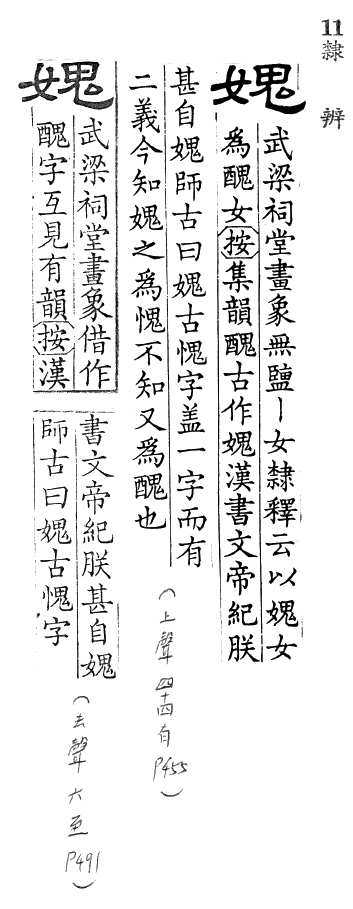 11 隸辨
媿
武梁祠堂畫象無鹽丨女隸釋云以媿女
為醜女按集韻醜古作媿漢書文帝紀朕
甚自媿師古曰媿古愧字盖一字而有
二義今知媿之為愧不知又為醜也
(上聲四十四有 P455)
媿
武梁祠堂畫象借作
醜字互見有韻按漢
書文帝紀朕甚自媿
師古曰媿古愧字
(去聲六至 P491)